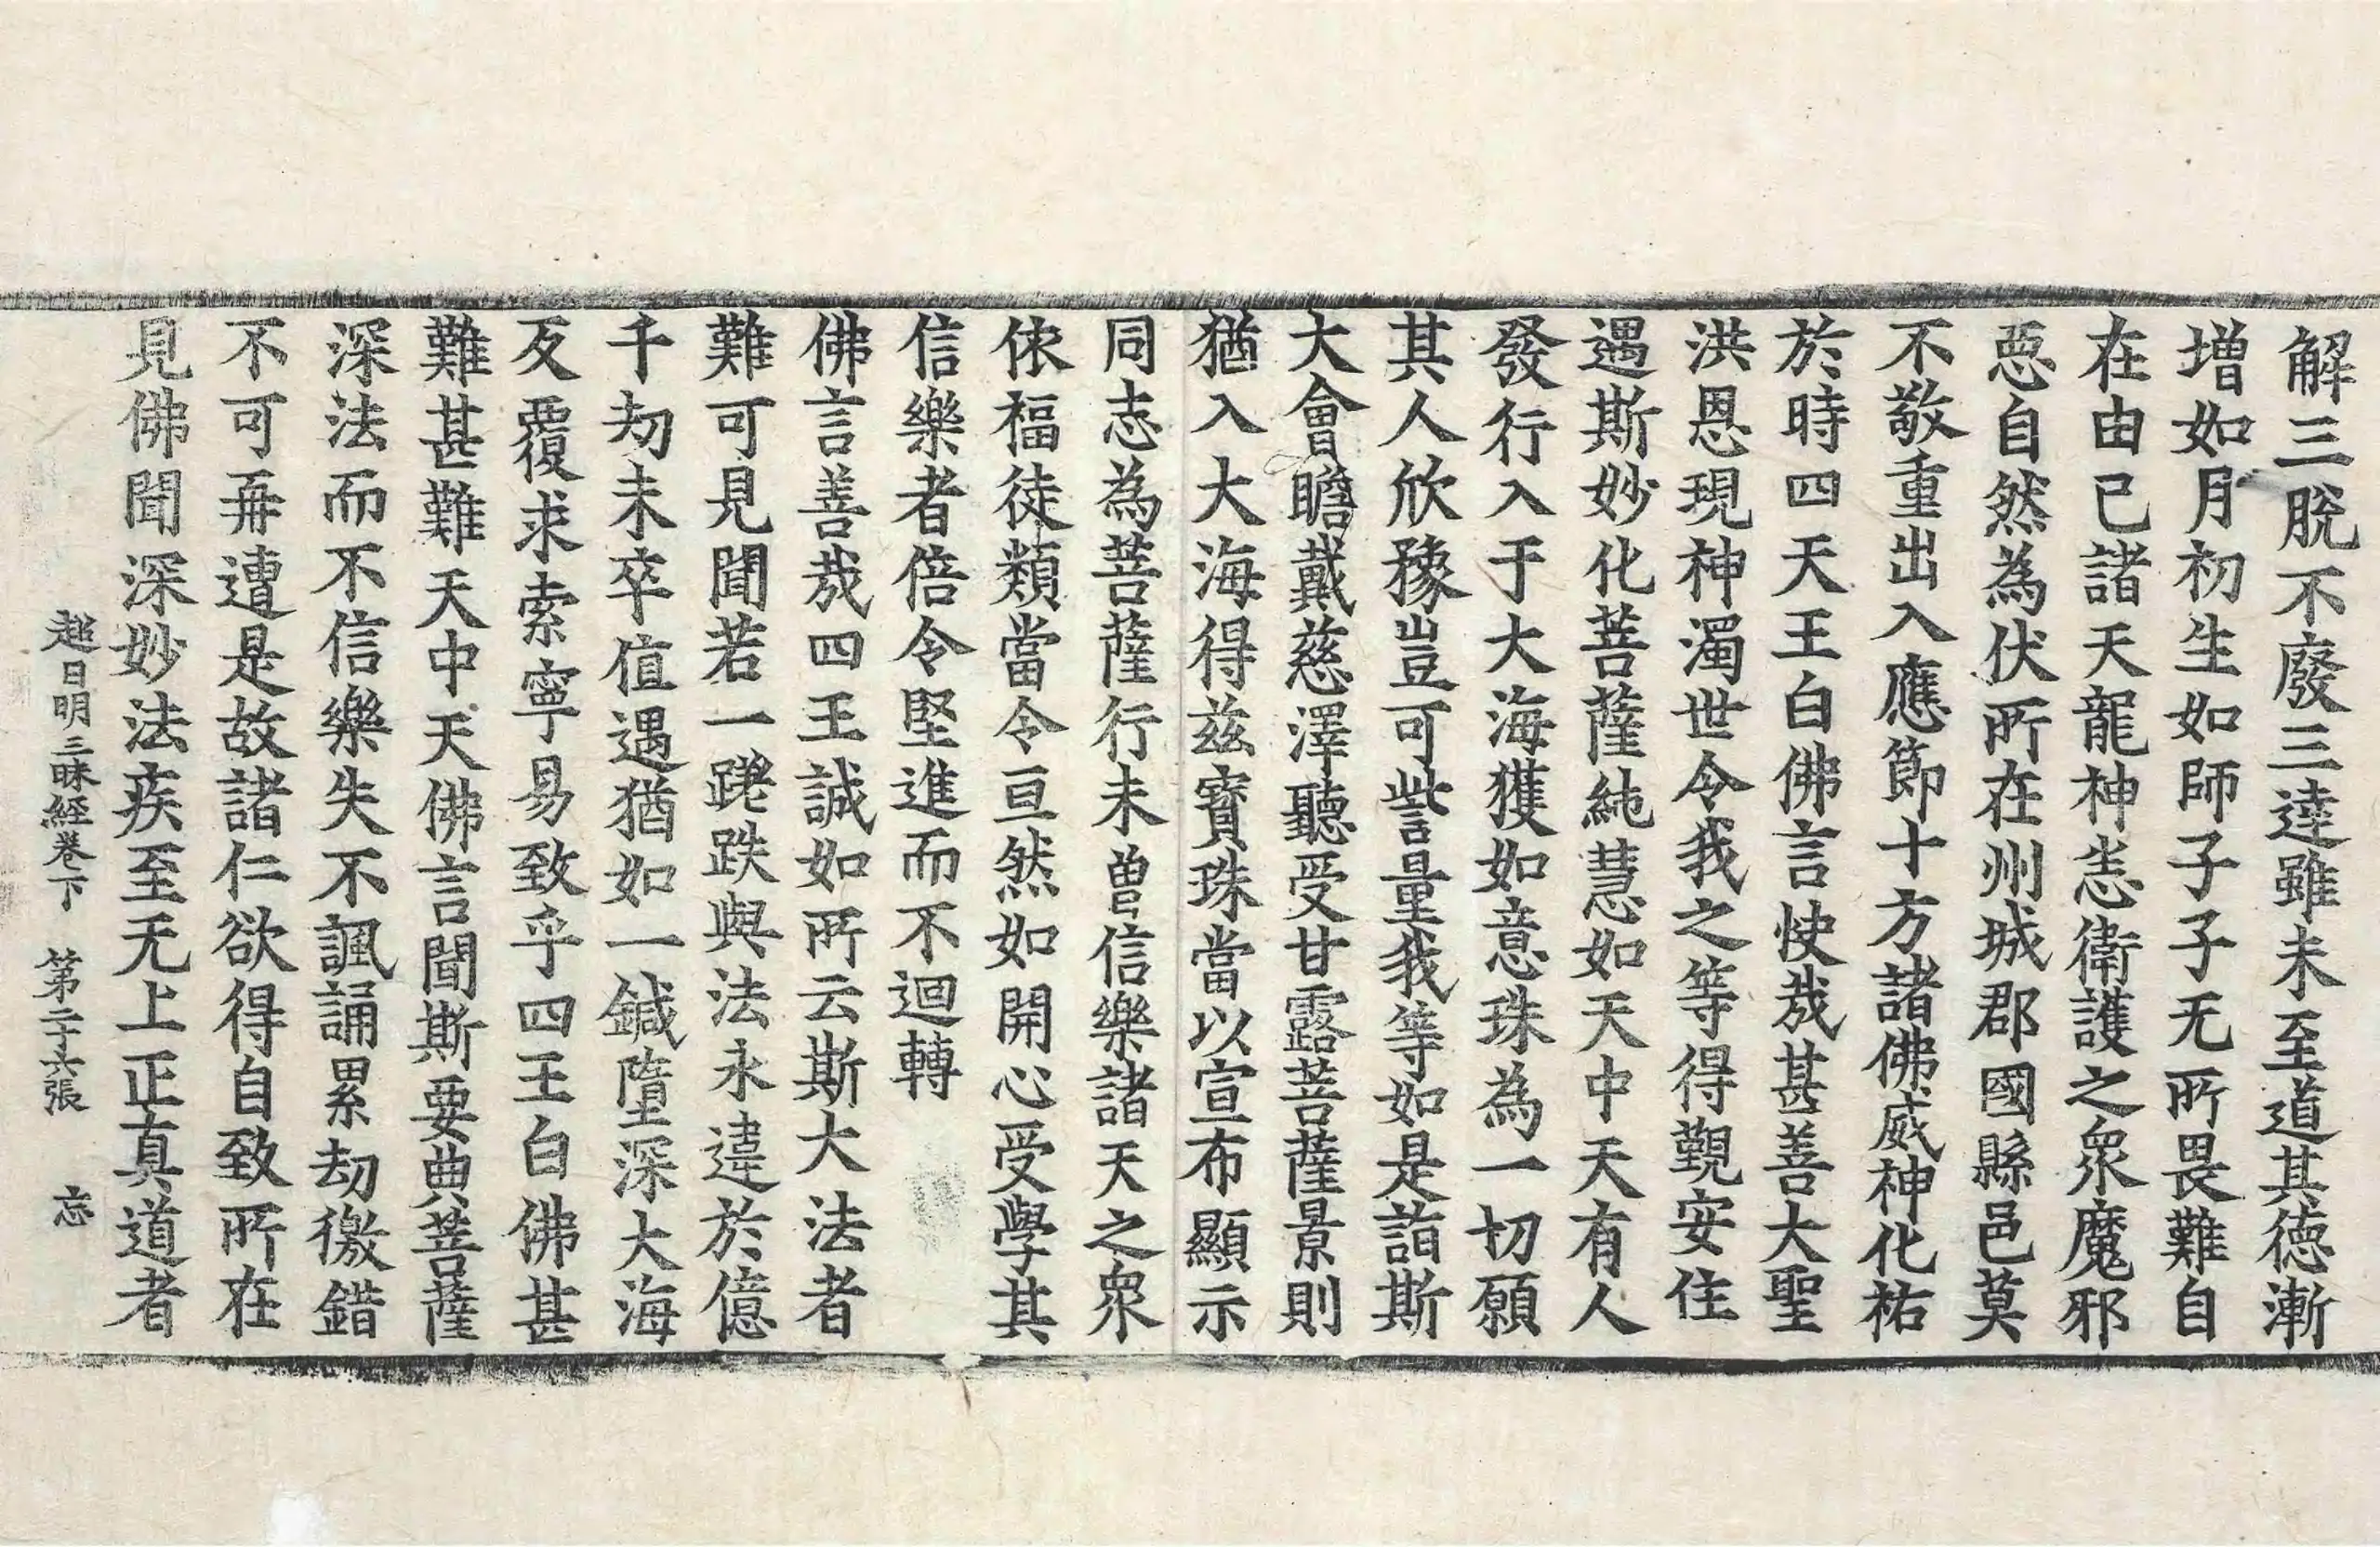 解三脫不廢三達雖未至道其德漸
增如月初生如師子子无所畏難自
在由己諸天龍神恙衛護之眾魔邪
惡自然為伏所在州城郡國縣邑莫
不敬重出入應節十方諸佛威神化祐
於時四天王白佛言快哉甚善大聖
洪恩現神濁世令我之等得覲安住
遇斯妙化菩薩純慧如天中天有人
發行入于大海獲如意珠為一切願
其人欣豫豈可訾量我等如是詣斯
大會瞻戴慈澤聽受甘露菩薩景則
猶入大海得茲寶珠當以宣布顯示
同志為菩薩行未曾信樂諸天之眾
依福徒類當令亘然如開心受學其
信樂者倍令堅進而不迴轉
佛言善哉四王誠如所云斯大法者
難可見聞若一蹉跌與法永違於億
千劫未卒值遇猶如一鍼墮深大海
反覆求索寧易致乎四王白佛甚
難甚難天中天佛言聞斯要典菩薩
深法而不信樂失不諷誦累劫徼錯
不可再遭是故諸仁欲得自致所在
見佛聞深妙法疾至无上正真道者
超日明三昧經卷下 第二十六張 忘